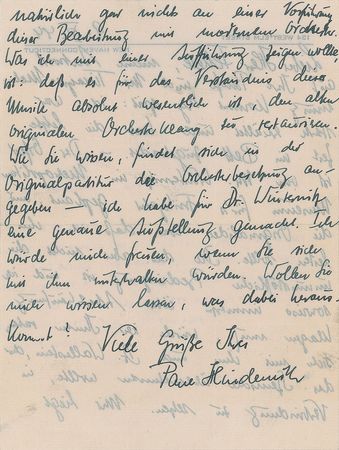 natürlich gar nichts an einer Vorführung
dieser Bearbeitung mit modernem Orchester.
Was ich mit einer Aufführung zeigen wollte
ist: daß es für das Verständnis dieser
Musik absolut wesentlich ist, den alten
originalen Orchesterklang zu restaurieren.
Wie Sie wissen, findet sich in der
Originalpartitur die Orchesterbesetzung an-
gegeben — ich habe für Dr. Winternitz
eine genaue Aufstellung gemacht. Ich
würde mich freuen, wenn Sie sich
mit ihm unterhalten würden. Wollen Sie
mich wissen lassen, was dabei heraus-
kommt?
Viele Grüße Ihr
Paul Hindemith